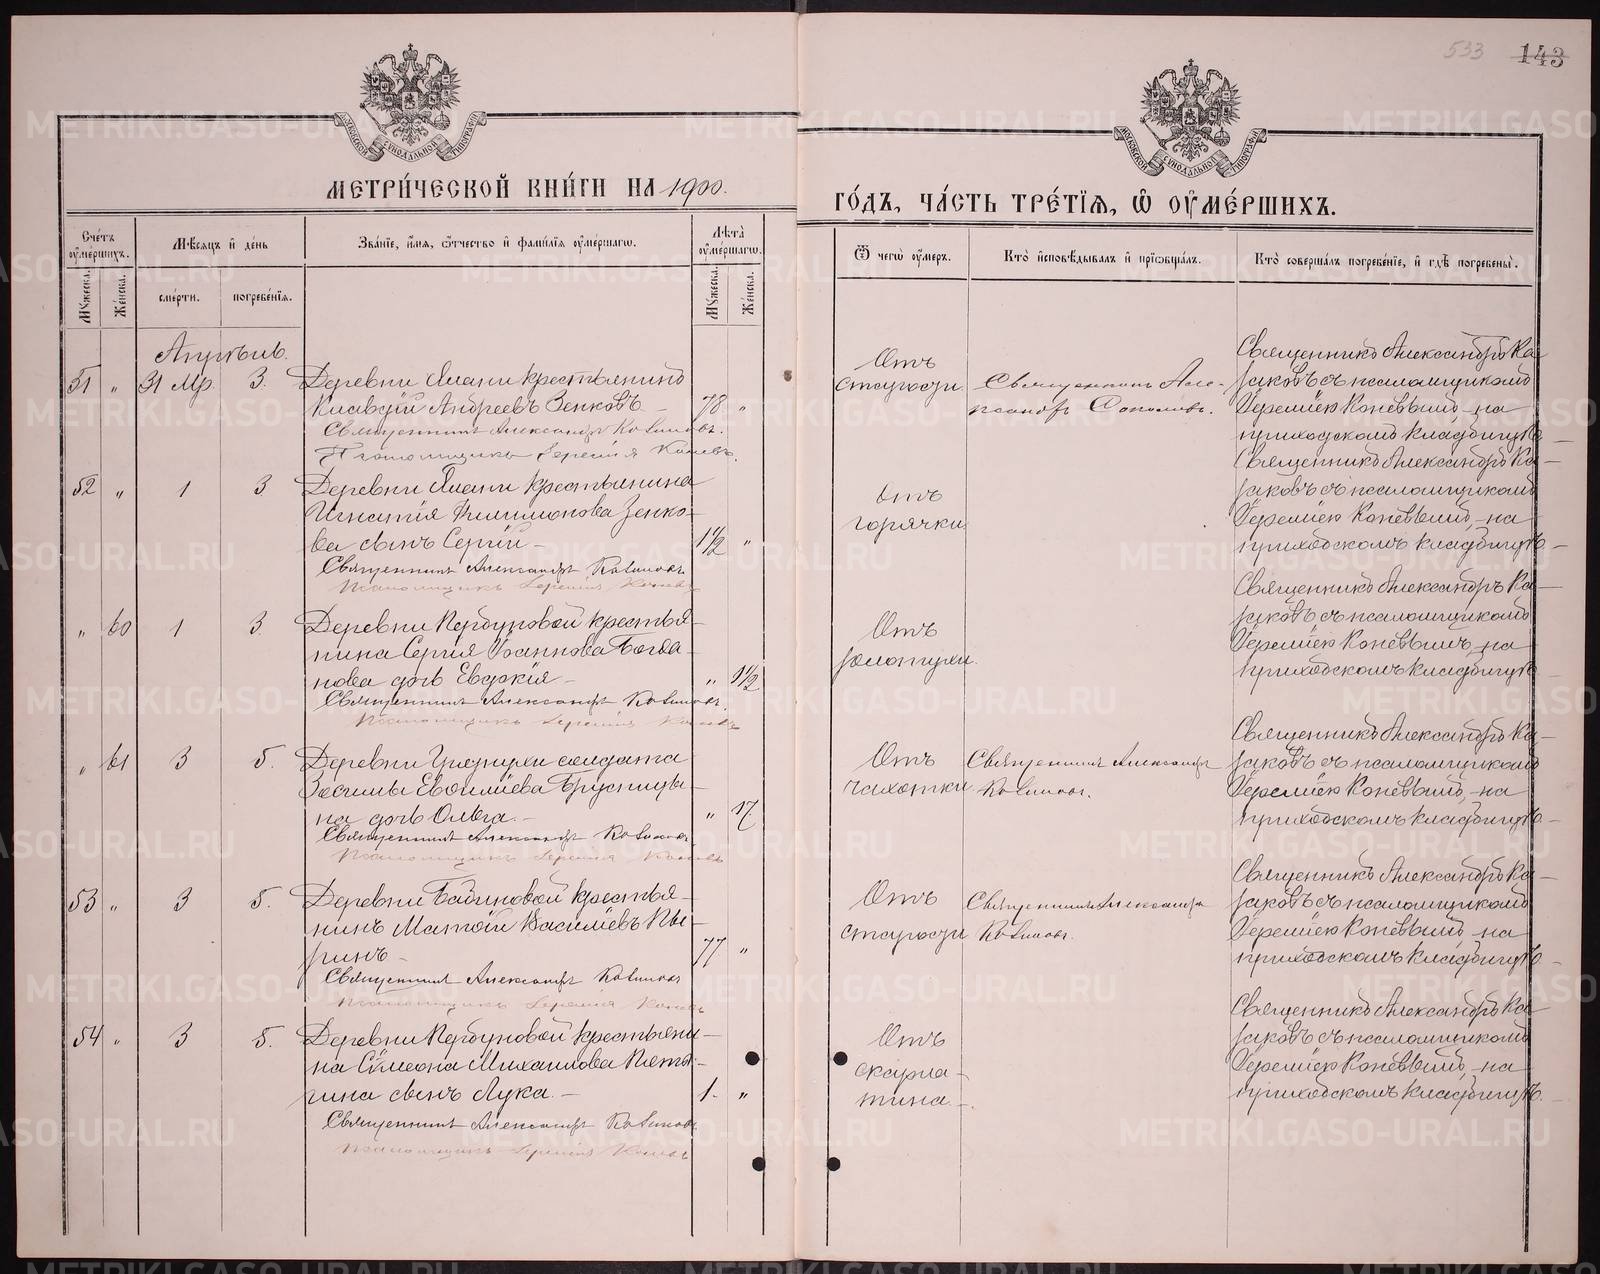 533 143
МЕТРИ́ЧЕСКОЙ КНИ́ГИ НА 1900.
ГО́ДЪ, ЧА́СТЬ ТРЕ́ТІѦ, Ѡ ОУ҆МЕ́РШИХЪ.
МОСКОВСКОЙ СѴНОДАЛЬНОЙ ТИПОГРАФІИ
МОСКОВСКОЙ СѴНОДАЛЬНОЙ ТИПОГРАФІИ
Сче́тъ оу҆ме́ршихъ.
Мꙋ́жеска. Же́нска.
Мѣ́сѧцъ и҆ де́нь
сме́рти. погребе́нїѧ.
Зва́нїе, и҆́мѧ, ѻ҆́тчество и҆ фами́лїѧ оу҆ме́ршагѡ.
Лѣ́та оу҆ме́ршагѡ.
Мꙋ́жеска. Же́нска.
Ѿ чегѡ̀ оу҆́меръ.
Кто̀ и҆сповѣ́дывалъ и҆ прїѡбща́лъ.
Кто̀ соверша́лъ погребе́нїе, и҆ гдѣ̀ погребены̀.
Апрѣль.
51 " 31 Мр. 3.
Деревни крестьянинъ
Клавдій Андреевъ Зенковъ – 78 "
Священникъ Александръ
Псаломщикъ Іеремія Коневъ.
Отъ
старости
Священникъ Але-
ксандръ
Священникъ Александръ Ка-
заковъ съ псаломщикомъ
Іереміею Коневымъ, на
приходскомъ кладбищѣ –
52 " 1 3
Деревни крестьянина
Игнатія Филимонова Зенко-
ва сынъ Сергій – 1½ "
Священникъ Александръ
Псаломщикъ Іеремія Коневъ
отъ
горячки
Священникъ Александръ Ка-
заковъ съ псаломщикомъ
Іереміею Коневымъ, на
приходскомъ кладбищѣ –
" 60 1 3
Деревни крестья-
нина Сергія Іоаннова Богда-
нова дочь Евдокія – " 1½
Священникъ Александръ
Псаломщикъ Іеремія Коневъ
Отъ
золотухи
Священникъ Александръ Ка-
заковъ съ псаломщикомъ
Іереміею Коневымъ, на
приходскомъ кладбищѣ
" 61 3 5.
Деревни солдата
Зосимы Брусницы-
на дочь Ольга. – " 17
Священникъ Александръ
Псаломщикъ Іеремія Коневъ
Отъ
чахотки
Священникъ Александръ
Священникъ Александръ Ка-
заковъ съ псаломщикомъ
Іереміею Коневымъ, на
приходскомъ кладбищѣ –
53 " 3 5.
Деревни крестья-
нинъ Матѳій Васильевъ Пы-
ринъ – 77 "
Священникъ Александръ
Псаломщикъ Іеремія Коневъ
Отъ
старости
Священникъ Александръ
Священникъ Александръ Ка-
заковъ съ псаломщикомъ
Іереміею Коневымъ, на
приходскомъ кладбищѣ –
54 " 3 5.
Деревни крестьяни-
на Сѵмеона Михаилова
сынъ Лука. – 1. "
Священникъ Александръ
Псаломщикъ Іеремія Коневъ
Отъ
скарла-
тина –
Священникъ Александръ Ка-
заковъ съ псаломщикомъ
Іереміею Коневымъ, на
приходскомъ кладбищѣ.
METRIKI.GASO-URAL.RU